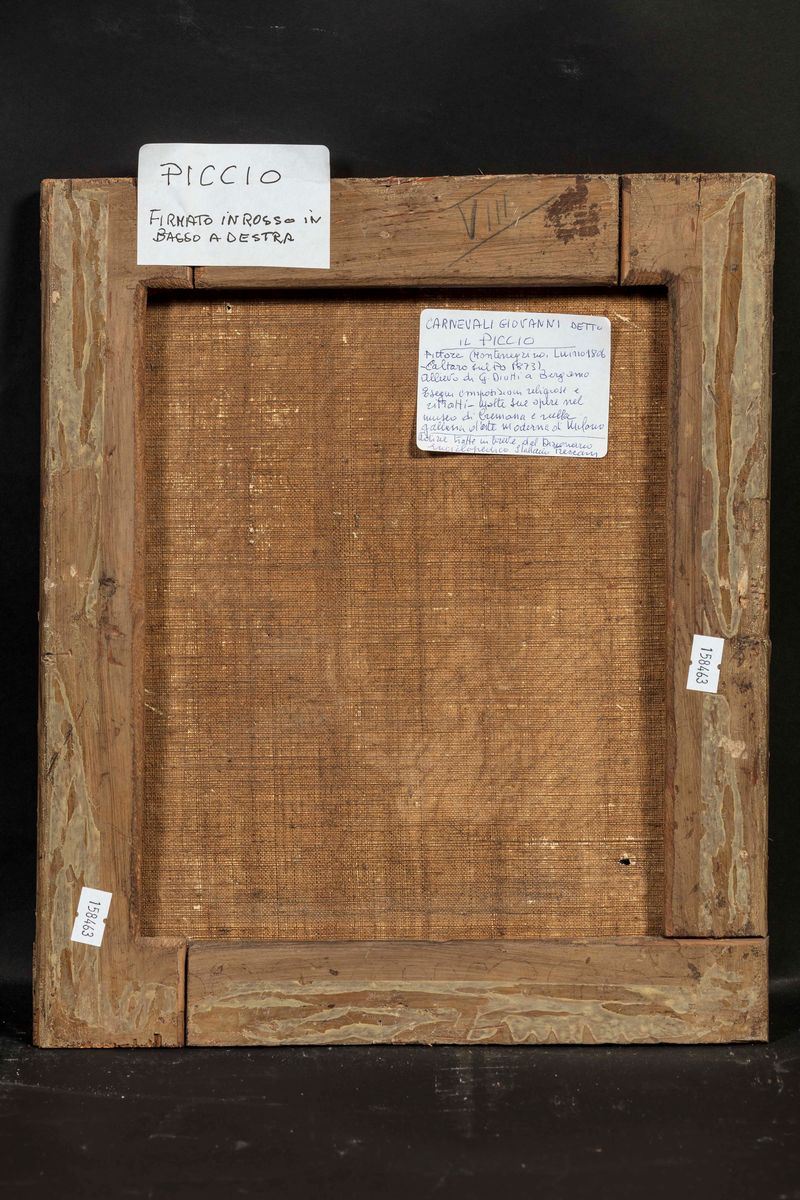 PICCIO
FIRMATO IN ROSSO IN
BASSO A DESTRA
VIII
CARNEVALI GIOVANNI DETTO
IL PICCIO
Pittore (Montenegrino, Luino 1806
-Caltaro sul Po 1873)
allievo di G. Diotti a Bergamo
Eseguì composizioni religiose e
ritratti - Molte sue opere nel
museo di Cremona e nella
galleria d'arte moderna di Milano
tratte in breve dal Dizionario
enciclopedico
158463
158463